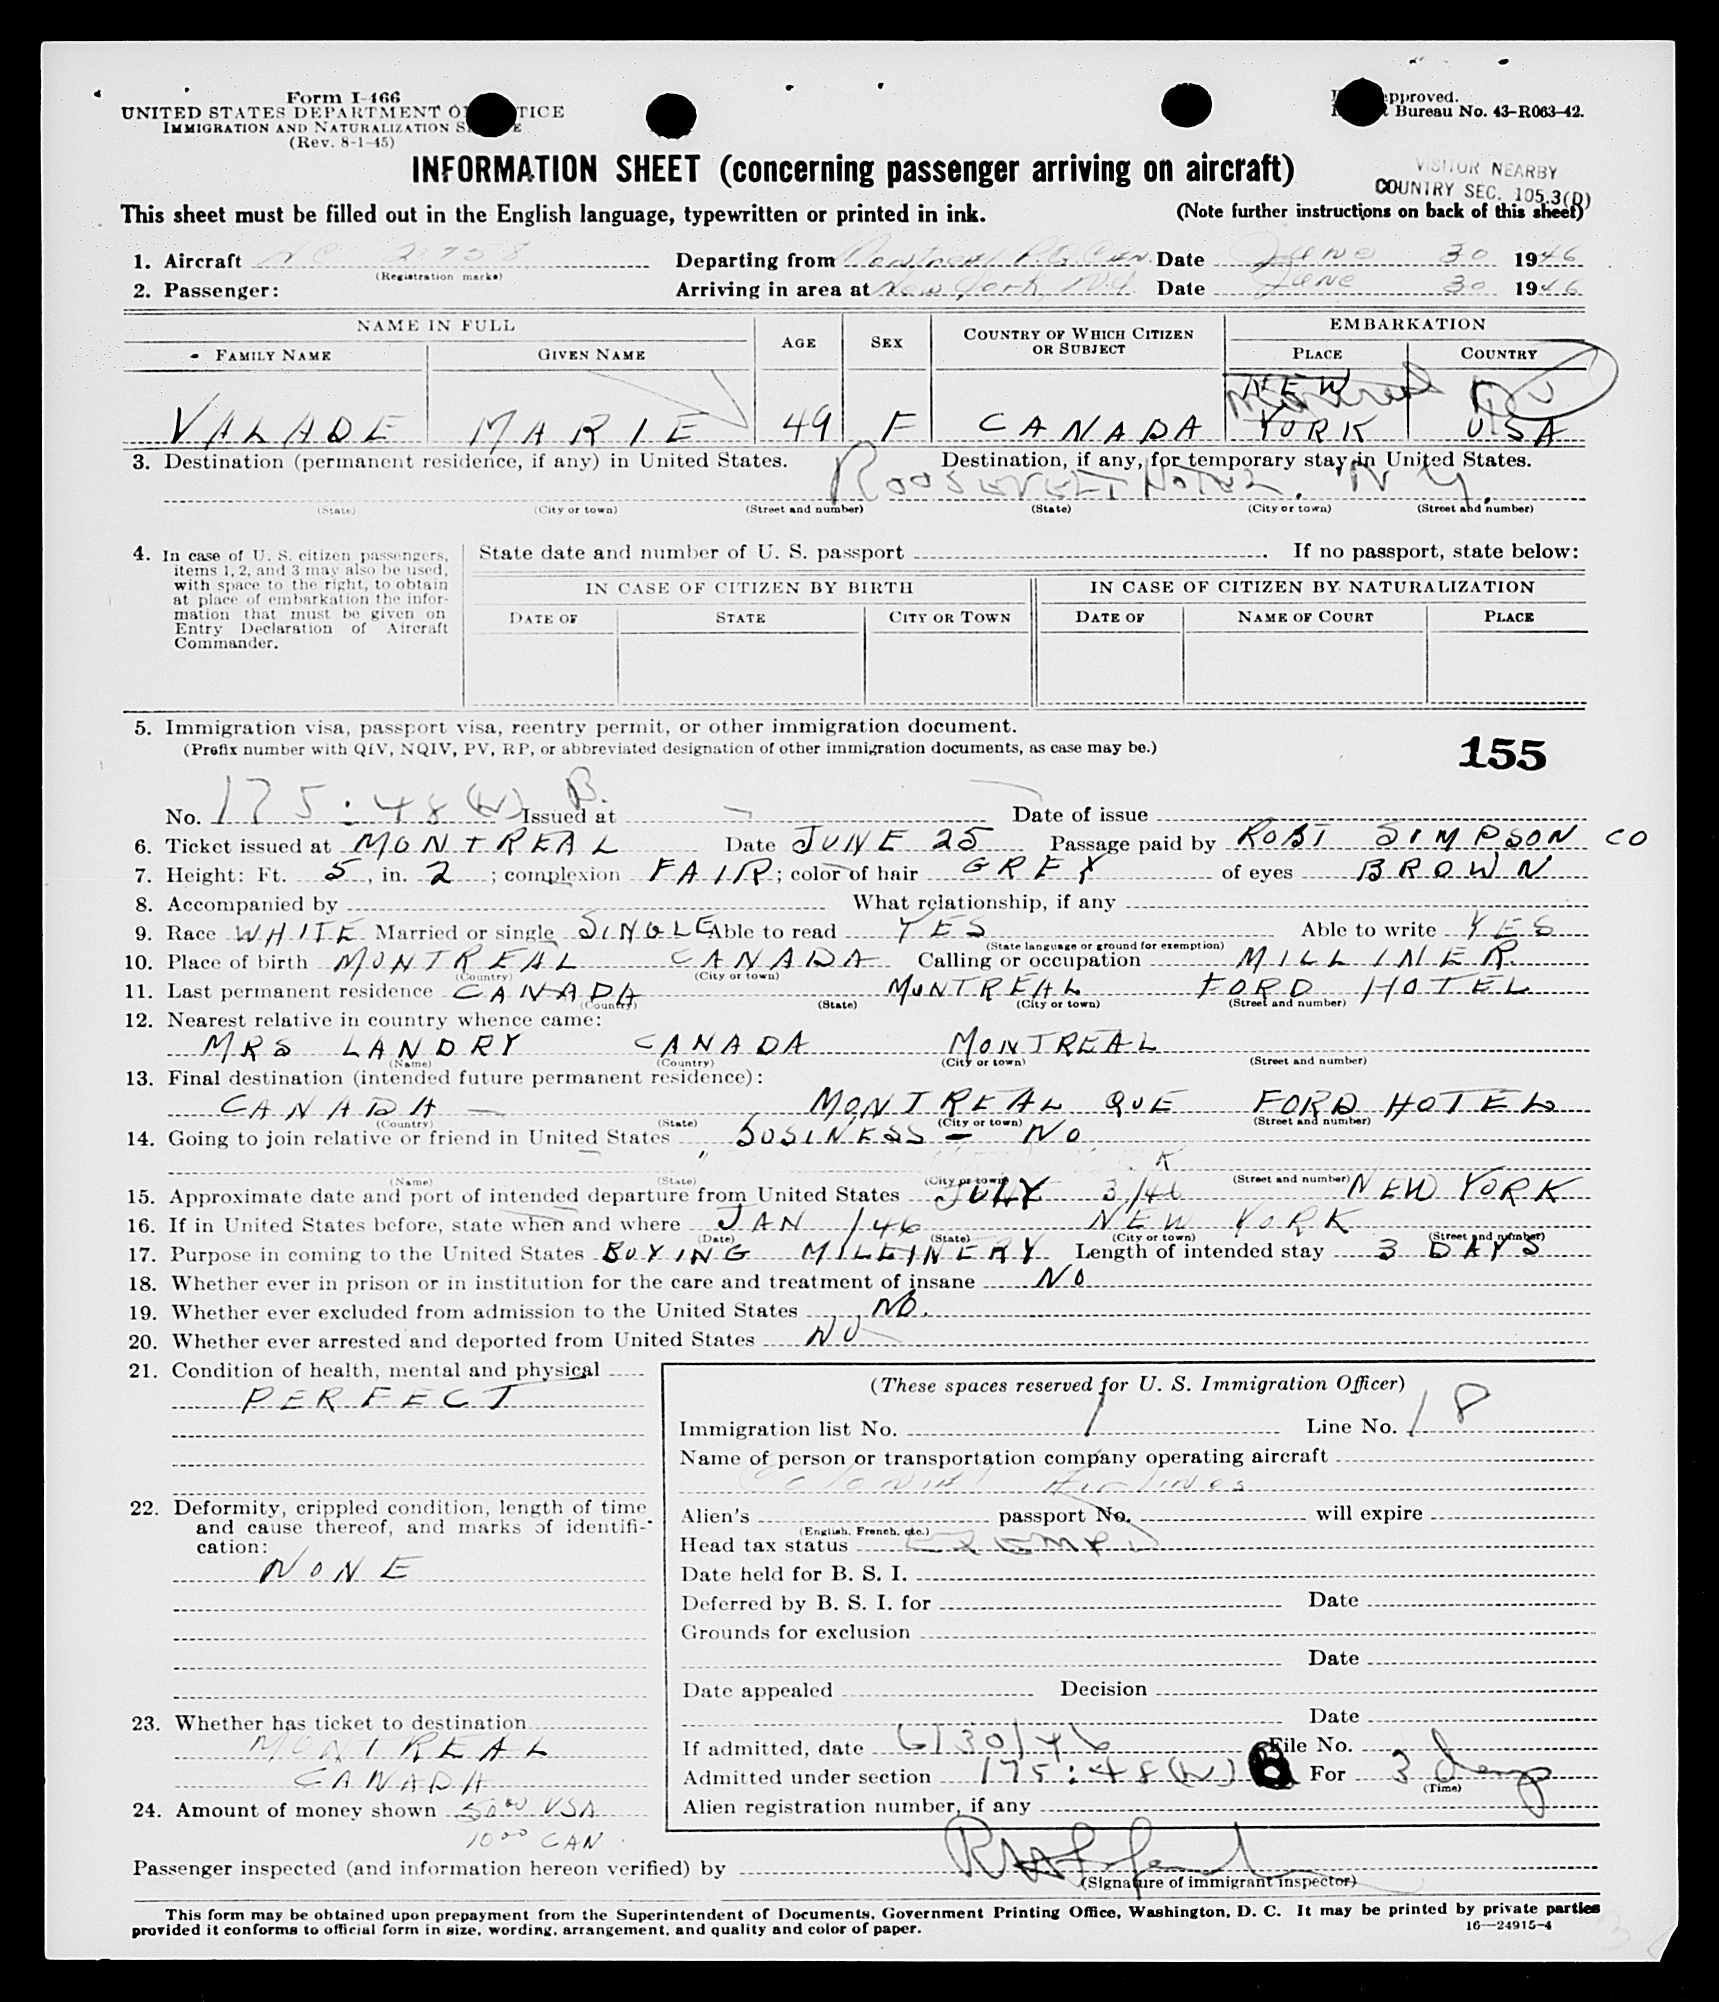 Form I-466
UNITED STATES DEPARTMENT OF JUSTICE
IMMIGRATION AND NATURALIZATION SERVICE
(Rev. 8-1-45)
Form approved.
Budget Bureau No. 43-R063-42.
INFORMATION SHEET (concerning passenger arriving on aircraft)
VISITOR NEARBY
COUNTRY SEC. 105.3(D)
This sheet must be filled out in the English language, typewritten or printed in ink. (Note further instructions on back of this sheet)
1. Aircraft NC 21758 Departing from Montreal P.Q. Can. Date June 30 1946
(Registration marks)
2. Passenger: Arriving in area at New York, N.Y. Date June 30 1946
NAME IN FULL AGE SEX COUNTRY OF WHICH CITIZEN OR SUBJECT EMBARKATION
FAMILY NAME GIVEN NAME PLACE COUNTRY
VALADE MARIE 49 F CANADA NEW YORK Montreal USA
3. Destination (permanent residence, if any) in United States. Destination, if any, for temporary stay in United States.
ROOSEVELT HOTEL. N Y.
(State) (City or town) (Street and number) (State) (City or town) (Street and number)
4. In case of U. S. citizen passengers, items 1, 2, and 3 may also be used, with space to the right, to obtain at place of embarkation the information that must be given on Entry Declaration of Aircraft Commander.
State date and number of U. S. passport . If no passport, state below:
IN CASE OF CITIZEN BY BIRTH IN CASE OF CITIZEN BY NATURALIZATION
DATE OF STATE CITY OR TOWN DATE OF NAME OF COURT PLACE
5. Immigration visa, passport visa, reentry permit, or other immigration document.
(Prefix number with QIV, NQIV, PV, RP, or abbreviated designation of other immigration documents, as case may be.)
155
No. 175:48(W) B. Issued at Date of issue
6. Ticket issued at MONTREAL Date JUNE 25 Passage paid by ROBT SIMPSON CO
7. Height: Ft. 5, in. 2; complexion FAIR; color of hair GREY of eyes BROWN
8. Accompanied by What relationship, if any
9. Race WHITE Married or single SINGLE Able to read YES Able to write YES
(State language or ground for exemption)
10. Place of birth MONTREAL CANADA Calling or occupation MILLINER.
(Country) (City or town)
11. Last permanent residence CANADA MONTREAL FORD HOTEL
(Country) (State) (City or town) (Street and number)
12. Nearest relative in country whence came:
MRS LANDRY CANADA MONTREAL
(Name) (Country) (City or town) (Street and number)
13. Final destination (intended future permanent residence):
CANADA — MONTREAL QUE FORD HOTEL
(Country) (State) (City or town) (Street and number)
14. Going to join relative or friend in United States BUSINESS - NO
(Name) (State) (City or town) (Street and number)
15. Approximate date and port of intended departure from United States JULY 3/46 NEW YORK
16. If in United States before, state when and where JAN /46 NEW YORK
(Date) (State) (City or town) (Street and number)
17. Purpose in coming to the United States BUYING MILLINERY Length of intended stay 3 DAYS
18. Whether ever in prison or in institution for the care and treatment of insane NO
19. Whether ever excluded from admission to the United States NO.
20. Whether ever arrested and deported from United States NO
21. Condition of health, mental and physical
PERFECT
22. Deformity, crippled condition, length of time and cause thereof, and marks of identification:
NONE
23. Whether has ticket to destination
MONTREAL
CANADA
24. Amount of money shown 50 00 USA
10 00 CAN
(These spaces reserved for U. S. Immigration Officer)
Immigration list No. 1 Line No. 18
Name of person or transportation company operating aircraft
Colonial Airlines
Alien's passport No. will expire
(English, French, etc.)
Head tax status Exempt
Date held for B. S. I.
Deferred by B. S. I. for Date
Grounds for exclusion
Date
Date appealed Decision
Date
If admitted, date 6/30/46 File No.
Admitted under section 175:48(W) B For 3 days
(Time)
Alien registration number, if any
Passenger inspected (and information hereon verified) by
(Signature of immigrant inspector)
This form may be obtained upon prepayment from the Superintendent of Documents, Government Printing Office, Washington, D. C. It may be printed by private parties
provided it conforms to official form in size, wording, arrangement, and quality and color of paper.
16—24915-4